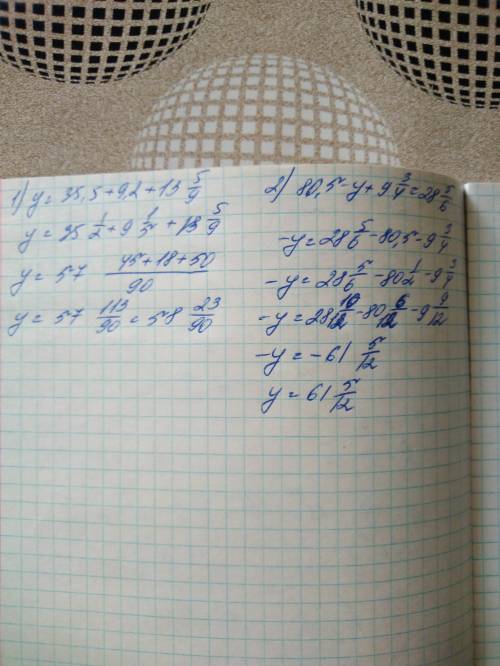 1) y = 35,5 + 9,2 + 13 5/9
y = 35 1/2 + 9 1/5 + 13 5/9
y = 57 (45+18+50)/90
y = 57 113/90 = 58 23/90
2) 80,5 - y + 9 3/4 = 28 5/6
-y = 28 5/6 - 80,5 - 9 3/4
-y = 28 5/6 - 80 1/2 - 9 3/4
-y = 28 10/12 - 80 6/12 - 9 9/12
-y = -61 5/12
y = 61 5/12